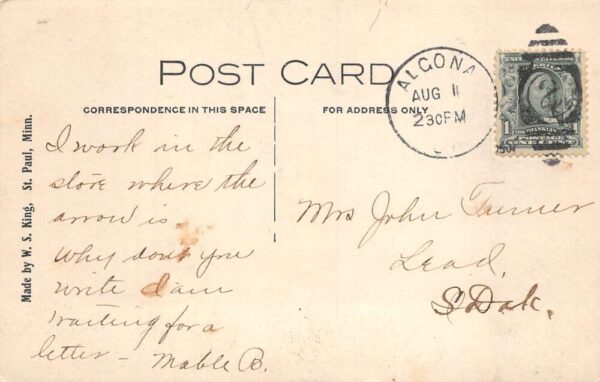 POST CARD
CORRESPONDENCE IN THIS SPACE
FOR ADDRESS ONLY
ALGONA
AUG 11
230PM
1
FRANKLIN
POSTAGE
ONE CENT
Made by W. S. King, St. Paul, Minn.
I work in the
store where the
arrow is
why dont you
write I am
waiting for a
letter - Mable B.
Mrs John Turner
Lead,
S Dak.